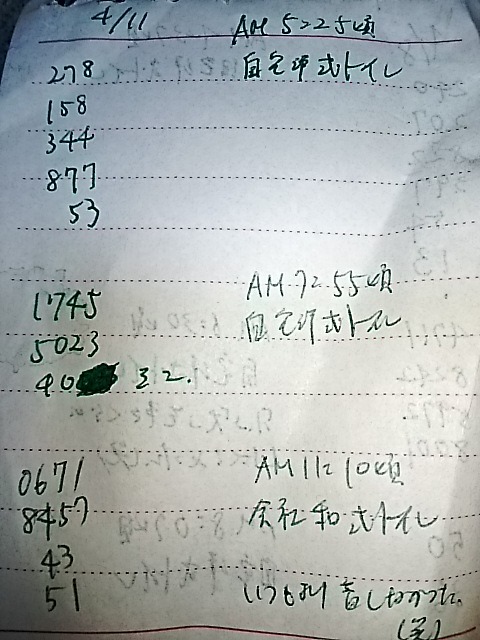 4/11 AM 5:25頃
278 自宅洋式トイレ
158
344
877
53
1745 AM 7:55頃
5023 自宅洋式トイレ
40
0671 AM 11:10頃
8457 会社和式トイレ
43
51 いつもより苦しかった。
(笑)